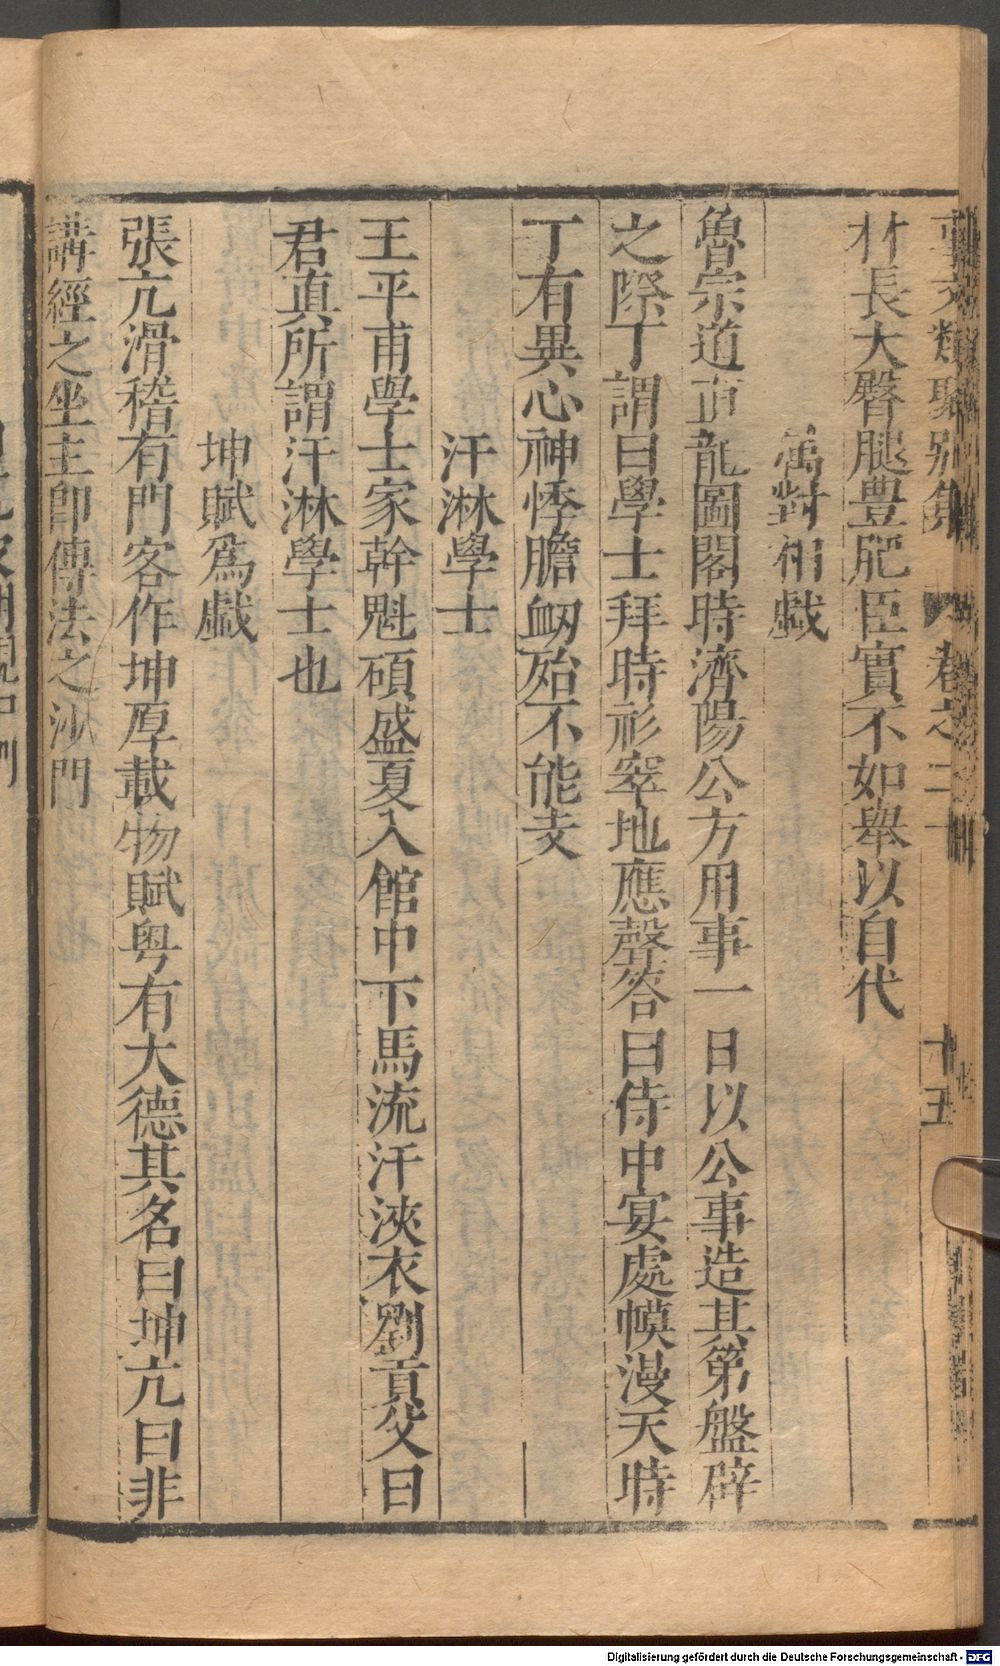 事文類聚別集 卷之二十 十五
材長大臀腿豊肥臣實不如舉以自代
寓對相戯
魯宗道直龍圖閣時濟陽公方用事一日以公事造其第盤辟
之際丁謂曰學士拜時衫窣地應聲答曰侍中宴處幙漫天時
丁有異心神悸膽衂殆不能支
汗淋學士
王平甫學士家幹魁碩盛夏入館中下馬流汗浹衣劉貢父曰
君真所謂汗淋學士也
坤賦爲戯
張亢滑稽有門客作坤厚載物賦粤有大德其名曰坤亢曰非
講經之坐主卽傳法之沙門
Digitalisierung gefördert durch die Deutsche Forschungsgemeinschaft - DFG